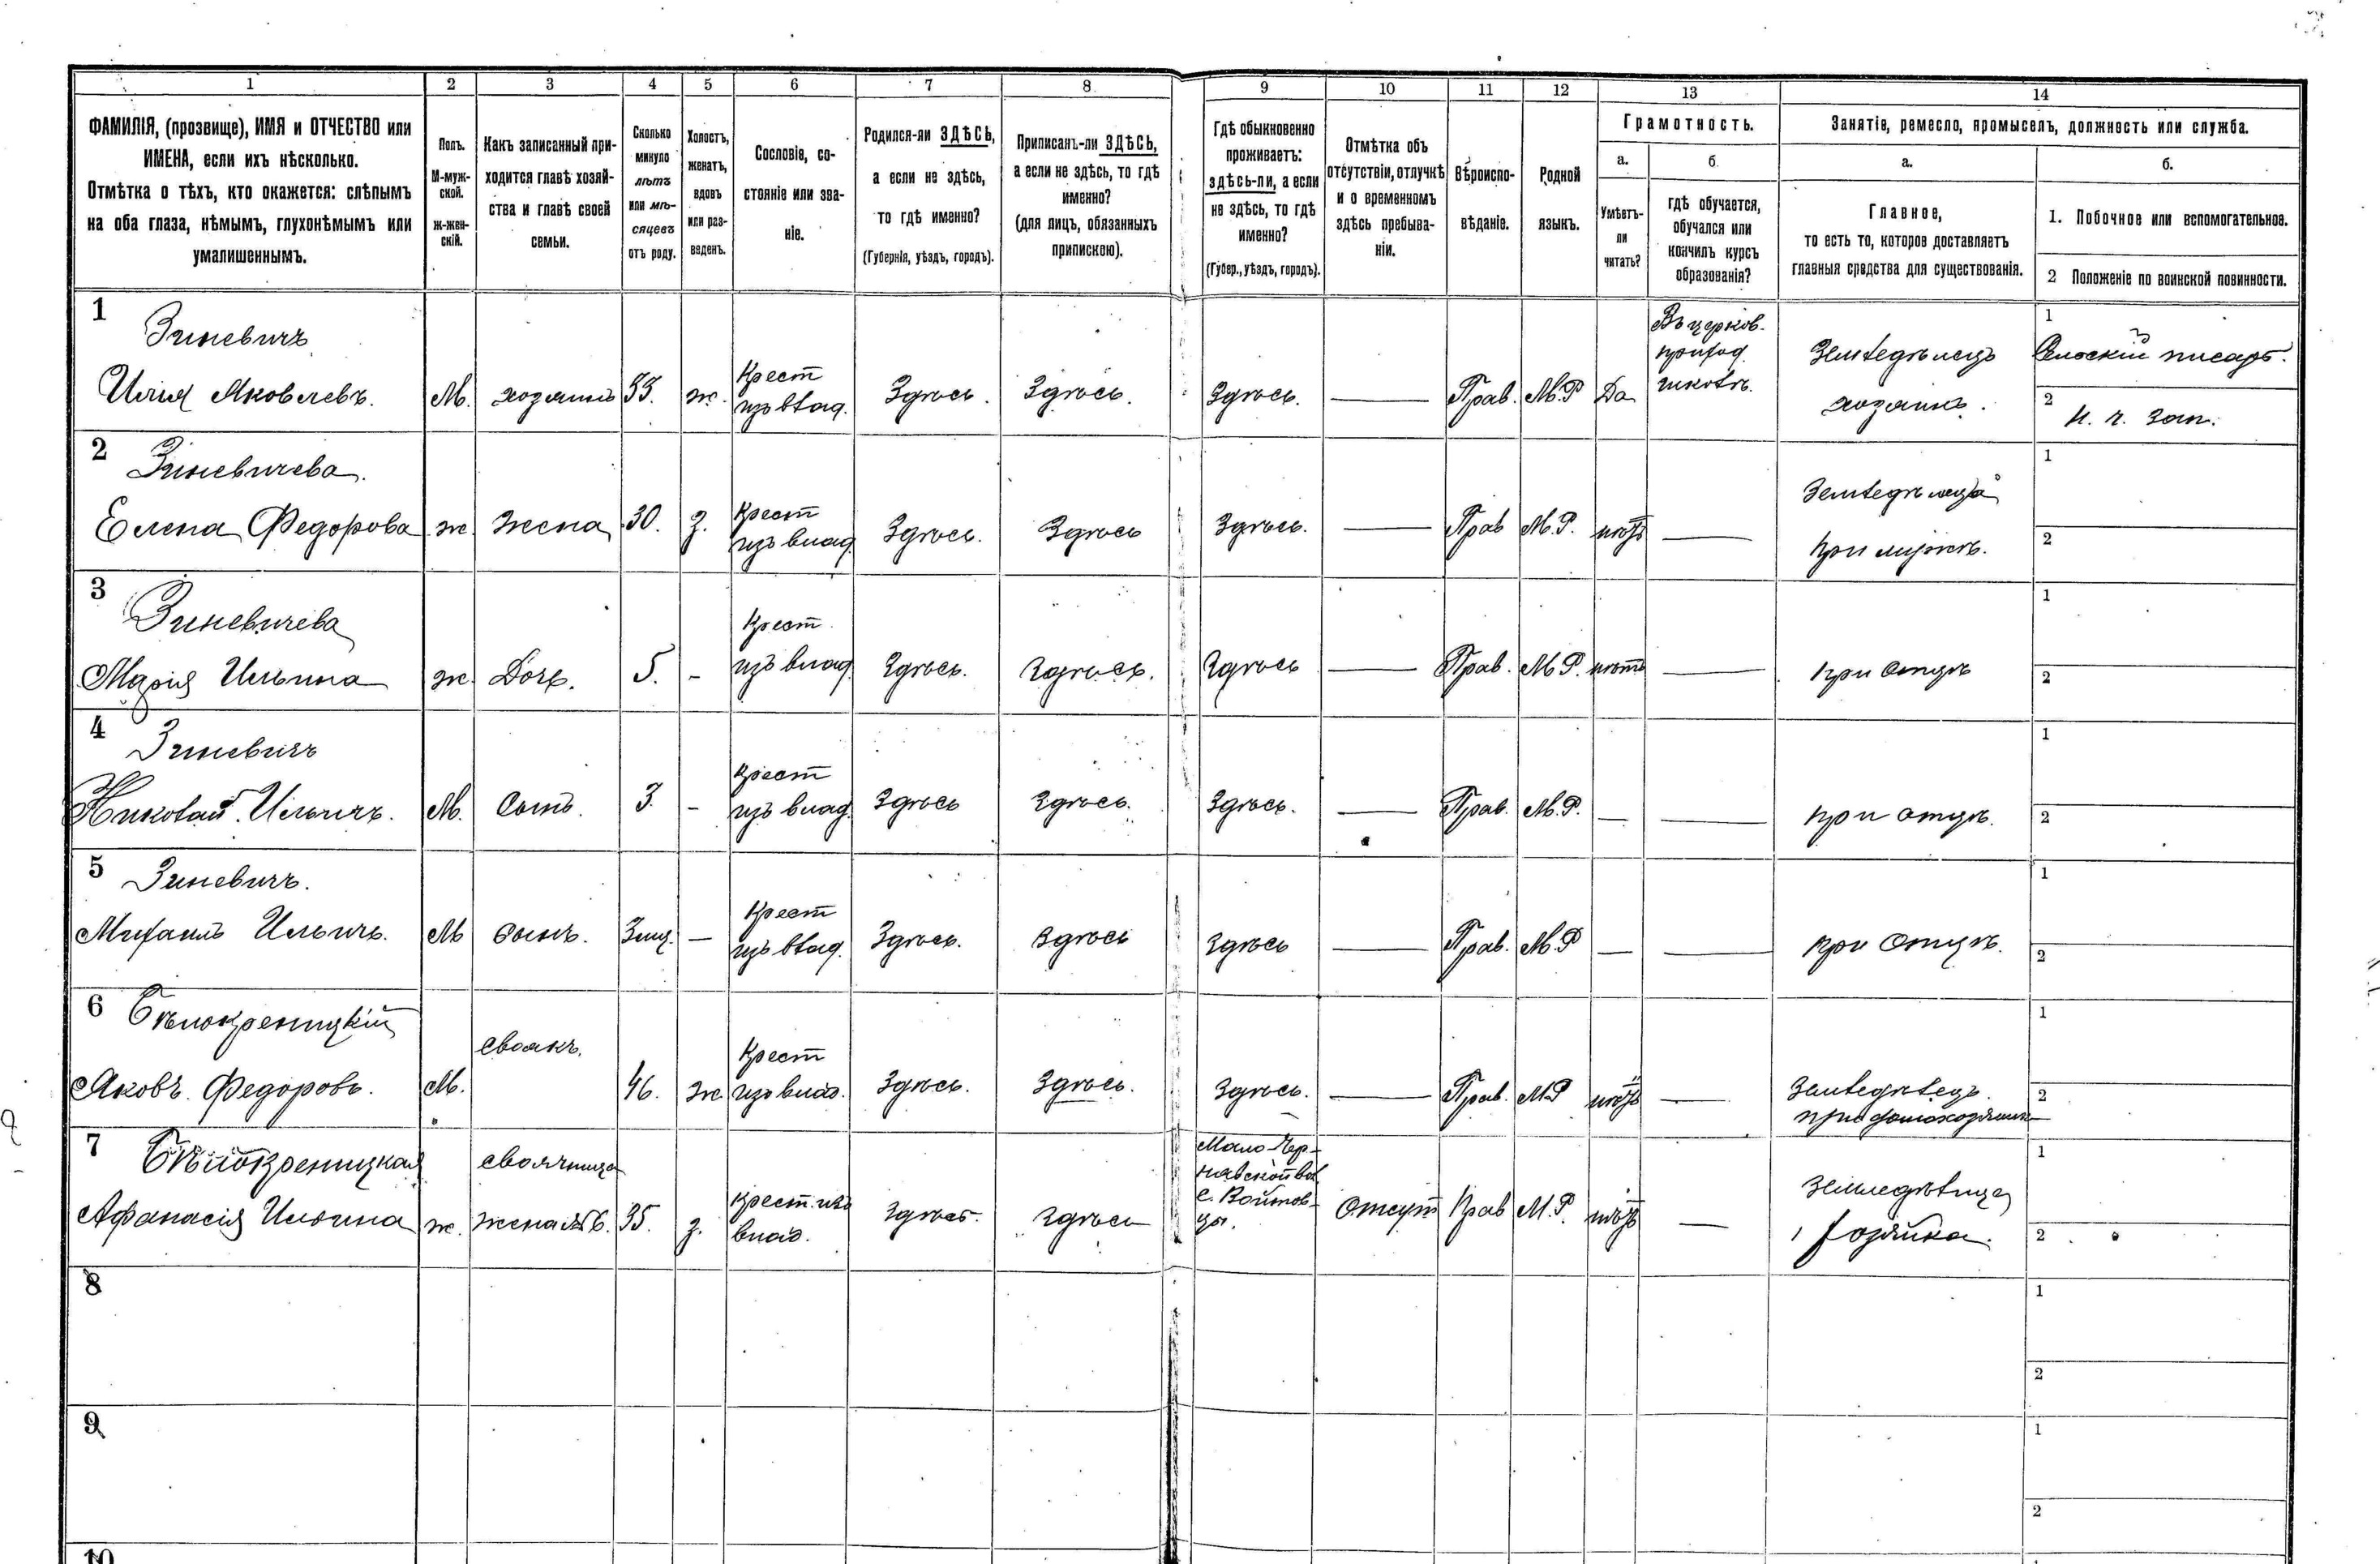 1 2 3 4 5 6 7 8 9 10 11 12 13 14
ФАМИЛІЯ, (прозвище), ИМЯ и ОТЧЕСТВО или
ИМЕНА, если ихъ нѣсколько.
Отмѣтка о тѣхъ, кто окажется: слѣпымъ
на оба глаза, нѣмымъ, глухонѣмымъ или
умалишеннымъ.
Полъ.
М-муж-
ской.
ж-жен-
скій.
Какъ записанный при-
ходится главѣ хозяй-
ства и главѣ своей
семьи.
Сколько
минуло
лѣтъ
или мѣ-
сяцевъ
отъ роду.
Холостъ,
женатъ,
вдовъ
или раз-
веденъ.
Сословіе, со-
стояніе или зва-
ніе.
Родился-ли ЗДѢСЬ,
а если не здѣсь,
то гдѣ именно?
(Губернія, уѣздъ, городъ).
Приписанъ-ли ЗДѢСЬ,
а если не здѣсь, то гдѣ
именно?
(для лицъ, обязанныхъ
припискою).
Гдѣ обыкновенно
проживаетъ:
здѣсь-ли, а если
не здѣсь, то гдѣ
именно?
(Губер., уѣздъ, городъ).
Отмѣтка объ
отсутствіи, отлучкѣ
и о временномъ
здѣсь пребыва-
ніи.
Вѣроиспо-
вѣданіе.
Родной
языкъ.
Грамотность.
а.
Умѣетъ-
ли
читать?
б.
гдѣ обучается,
обучался или
кончилъ курсъ
образованія?
Занятіе, ремесло, промыселъ, должность или служба.
а.
Главное,
то есть то, которое доставляетъ
главныя средства для существованія.
б.
1. Побочное или вспомогательное.
2 Положеніе по воинской повинности.
1
Зиневичъ
Илія Яковлевъ.
М.
хозяинъ
ж.
Крест
изъ влад.
Здѣсь.
Здѣсь.
Здѣсь.
Прав.
М.Р
Да
Въ церков.
приход.
школѣ.
Земледѣлецъ
хозяинъ.
1
Сельскій писарь.
2
2
Зиневичева.
Елена Федорова
ж.
жена
30.
з.
Крест
изъ влад.
Здѣсь.
Здѣсь
Здѣсь.
Прав
М.Р.
нѣтъ
при мужѣ.
1
2
3
Зиневичева
Марія Ильина
ж.
Дочь.
5.
-
Крест
изъ влад.
Здѣсь.
Здѣсь.
Здѣсь
Прав.
М.Р.
нѣтъ
при отцѣ
1
2
4
Зиневичъ
Николай Ильичъ.
М.
Сынъ.
3.
-
Крест
изъ влад.
Здѣсь
Здѣсь.
Здѣсь.
Прав.
М.Р.
при отцѣ.
1
2
5
Зиневичъ.
Михаилъ Ильичъ.
М
сынъ.
3 мц.
-
Крест
изъ влад.
Здѣсь.
Здѣсь
Здѣсь
Прав.
М.Р
при отцѣ.
1
2
6
Бѣлокреницкій
Яковъ Федоровъ.
М.
своякъ.
46.
ж
Крест
изъ влад.
Здѣсь.
Здѣсь.
Здѣсь.
Прав.
М.Р
нѣтъ
Земледѣлецъ.
при домохозяинѣ
1
2
7
Бѣлокреницкая
Афанасія Ильина
ж.
своячница
жена №6.
35.
з.
крест. изъ
влад.
Здѣсь.
Здѣсь
Мало-Чер-
нявской вол
с. Войтов-
цы.
Отсут
Прав
М.Р.
нѣтъ
хозяйка.
1
2
8
1
2
9
1
2
10